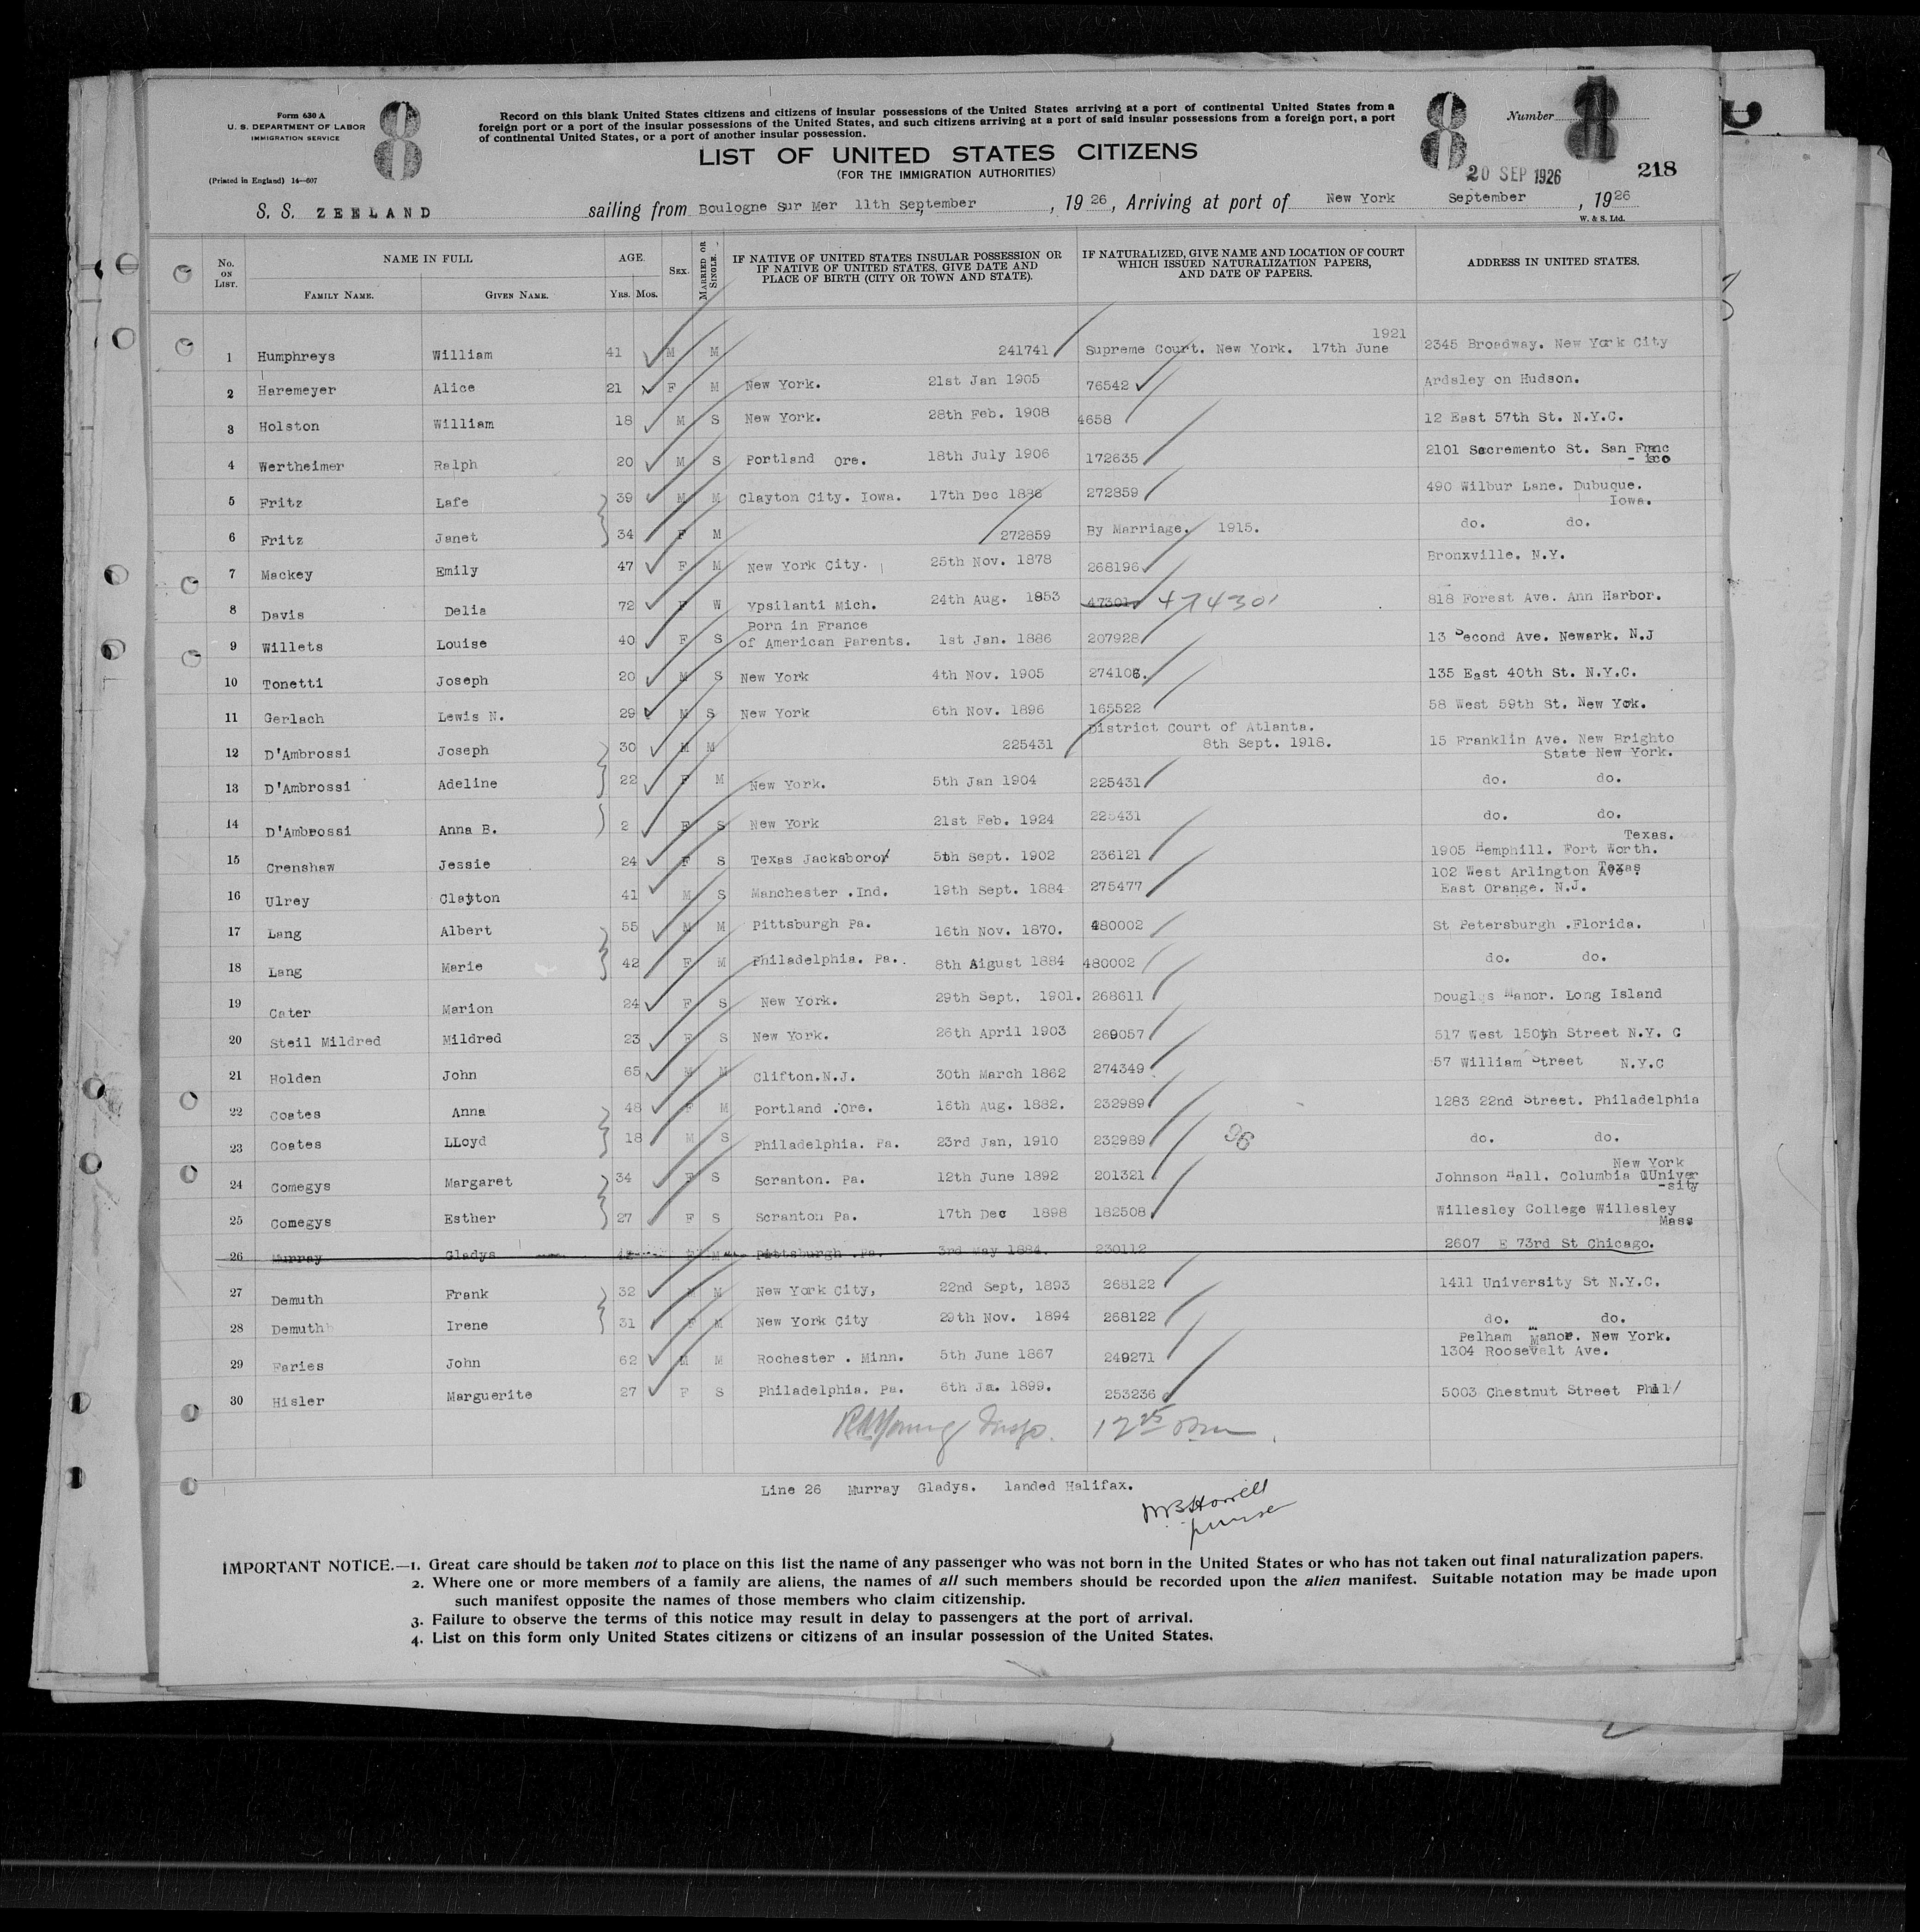 Form 630 A
U. S. DEPARTMENT OF LABOR
IMMIGRATION SERVICE
(Printed in England) 14—607
8
Record on this blank United States citizens and citizens of insular possessions of the United States arriving at a port of continental United States from a
foreign port or a port of the insular possessions of the United States, and such citizens arriving at a port of said insular possessions from a foreign port, a port
of continental United States, or a port of another insular possession.
LIST OF UNITED STATES CITIZENS
(FOR THE IMMIGRATION AUTHORITIES)
8
Number
20 SEP 1926
218
S. S. ZEELAND sailing from Boulogne Sur Mer 11th September, 1926, Arriving at port of New York September, 1926
W. & S. Ltd.
No. ON LIST. NAME IN FULL AGE. SEX. MARRIED OR SINGLE. IF NATIVE OF UNITED STATES INSULAR POSSESSION OR IF NATIVE OF UNITED STATES, GIVE DATE AND PLACE OF BIRTH (CITY OR TOWN AND STATE). IF NATURALIZED, GIVE NAME AND LOCATION OF COURT WHICH ISSUED NATURALIZATION PAPERS, AND DATE OF PAPERS. ADDRESS IN UNITED STATES.
FAMILY NAME. GIVEN NAME. YRS. MOS.
1921
1 Humphreys William 41 M M 241741 Supreme Court. New York. 17th June 2345 Broadway. New York City
2 Haremeyer Alice 21 F M New York. 21st Jan 1905 76542 Ardsley on Hudson.
3 Holston William 18 M S New York. 28th Feb. 1908 4658 12 East 57th St. N.Y.C.
4 Wertheimer Ralph 20 M S Portland Ore. 18th July 1906 172635 2101 Sacremento St. San Franc
- isco
5 Fritz Lafe 39 M M Clayton City. Iowa. 17th Dec 1886 272859 490 Wilbur Lane. Dubuque.
Iowa.
6 Fritz Janet 34 F M 272859 By Marriage. 1915. do. do.
7 Mackey Emily 47 F M New York City. 25th Nov. 1878 268196 Bronxville. N.Y.
8 Davis Delia 72 F W Ypsilanti Mich. 24th Aug. 1853 47301 474301 818 Forest Ave. Ann Harbor.
Born in France
9 Willets Louise 40 F S of American Parents. 1st Jan. 1886 207928 13 Second Ave. Newark. N.J
10 Tonetti Joseph 20 M S New York 4th Nov. 1905 274106. 135 East 40th St. N.Y.C.
11 Gerlach Lewis N. 29 M S New York 6th Nov. 1896 165522 58 West 59th St. New Yok.
District Court of Atlanta.
12 D'Ambrossi Joseph 30 M M 225431 8th Sept. 1918. 15 Franklin Ave. New Brighto
State New York.
13 D'Ambrossi Adeline 22 F M New York. 5th Jan 1904 225431 do. do.
14 D'Ambrossi Anna B. 2 F S New York 21st Feb. 1924 225431 do. do.
Texas.
15 Crenshaw Jessie 24 F S Texas Jacksboro 5th Sept. 1902 236121 1905 Hemphill. Fort Worth.
Texas
102 West Arlington Ave.
16 Ulrey Clayton 41 M S Manchester .Ind. 19th Sept. 1884 275477 East Orange. N.J.
17 Lang Albert 55 M M Pittsburgh Pa. 16th Nov. 1870. 480002 St Petersburgh .Florida.
18 Lang Marie 42 F M Philadelphia. Pa.. 8th Aigust 1884 480002 do. do.
19 Cater Marion 24 F S New York. 29th Sept. 1901. 268611 Douglas Manor. Long Island
20 Steil Mildred Mildred 23 F S New York. 26th April 1903 269057 517 West 150th Street N.Y. C
21 Holden John 65 M M Clifton.N.J. 30th March 1862 274349 57 William Street N.Y.C
22 Coates Anna 48 F M Portland .Ore. 16th Aug. 1882. 232989 1283 22nd Street. Philadelphia
23 Coates LLoyd 18 M S Philadelphia. Pa. 23rd Jan, 1910 232989 96 do. do.
New York
24 Comegys Margaret 34 F S Scranton. Pa. 12th June 1892 201321 Johnson Hall. Columbia Univer
-sity
25 Comegys Esther 27 F S Scranton Pa. 17th Dec 1898 182508 Willesley College Willesley
Mass
26 Murray Gladys 42 F M Pittsburgh .Pa. 3rd May 1884. 230112 2607 E 73rd St Chicago.
27 Demuth Frank 32 M M New York City, 22nd Sept, 1893 268122 1411 University St N.Y.C.
28 Demuth Irene 31 F M New York City 29th Nov. 1894 268122 do. do.
Pelham Manor. New York.
29 Faries John 62 M M Rochester . Minn. 5th June 1867 249271 1304 Roosevelt Ave.
30 Hisler Marguerite 27 F S Philadelphia. Pa. 6th Ja. 1899. 253236 5003 Chestnut Street Phil/
Young Insp. 12 25
Line 26 Murray Gladys. landed Halifax.
Howell
purser
IMPORTANT NOTICE.—1. Great care should be taken not to place on this list the name of any passenger who was not born in the United States or who has not taken out final naturalization papers.
2. Where one or more members of a family are aliens, the names of all such members should be recorded upon the alien manifest. Suitable notation may be made upon
such manifest opposite the names of those members who claim citizenship.
3. Failure to observe the terms of this notice may result in delay to passengers at the port of arrival.
4. List on this form only United States citizens or citizens of an insular possession of the United States.